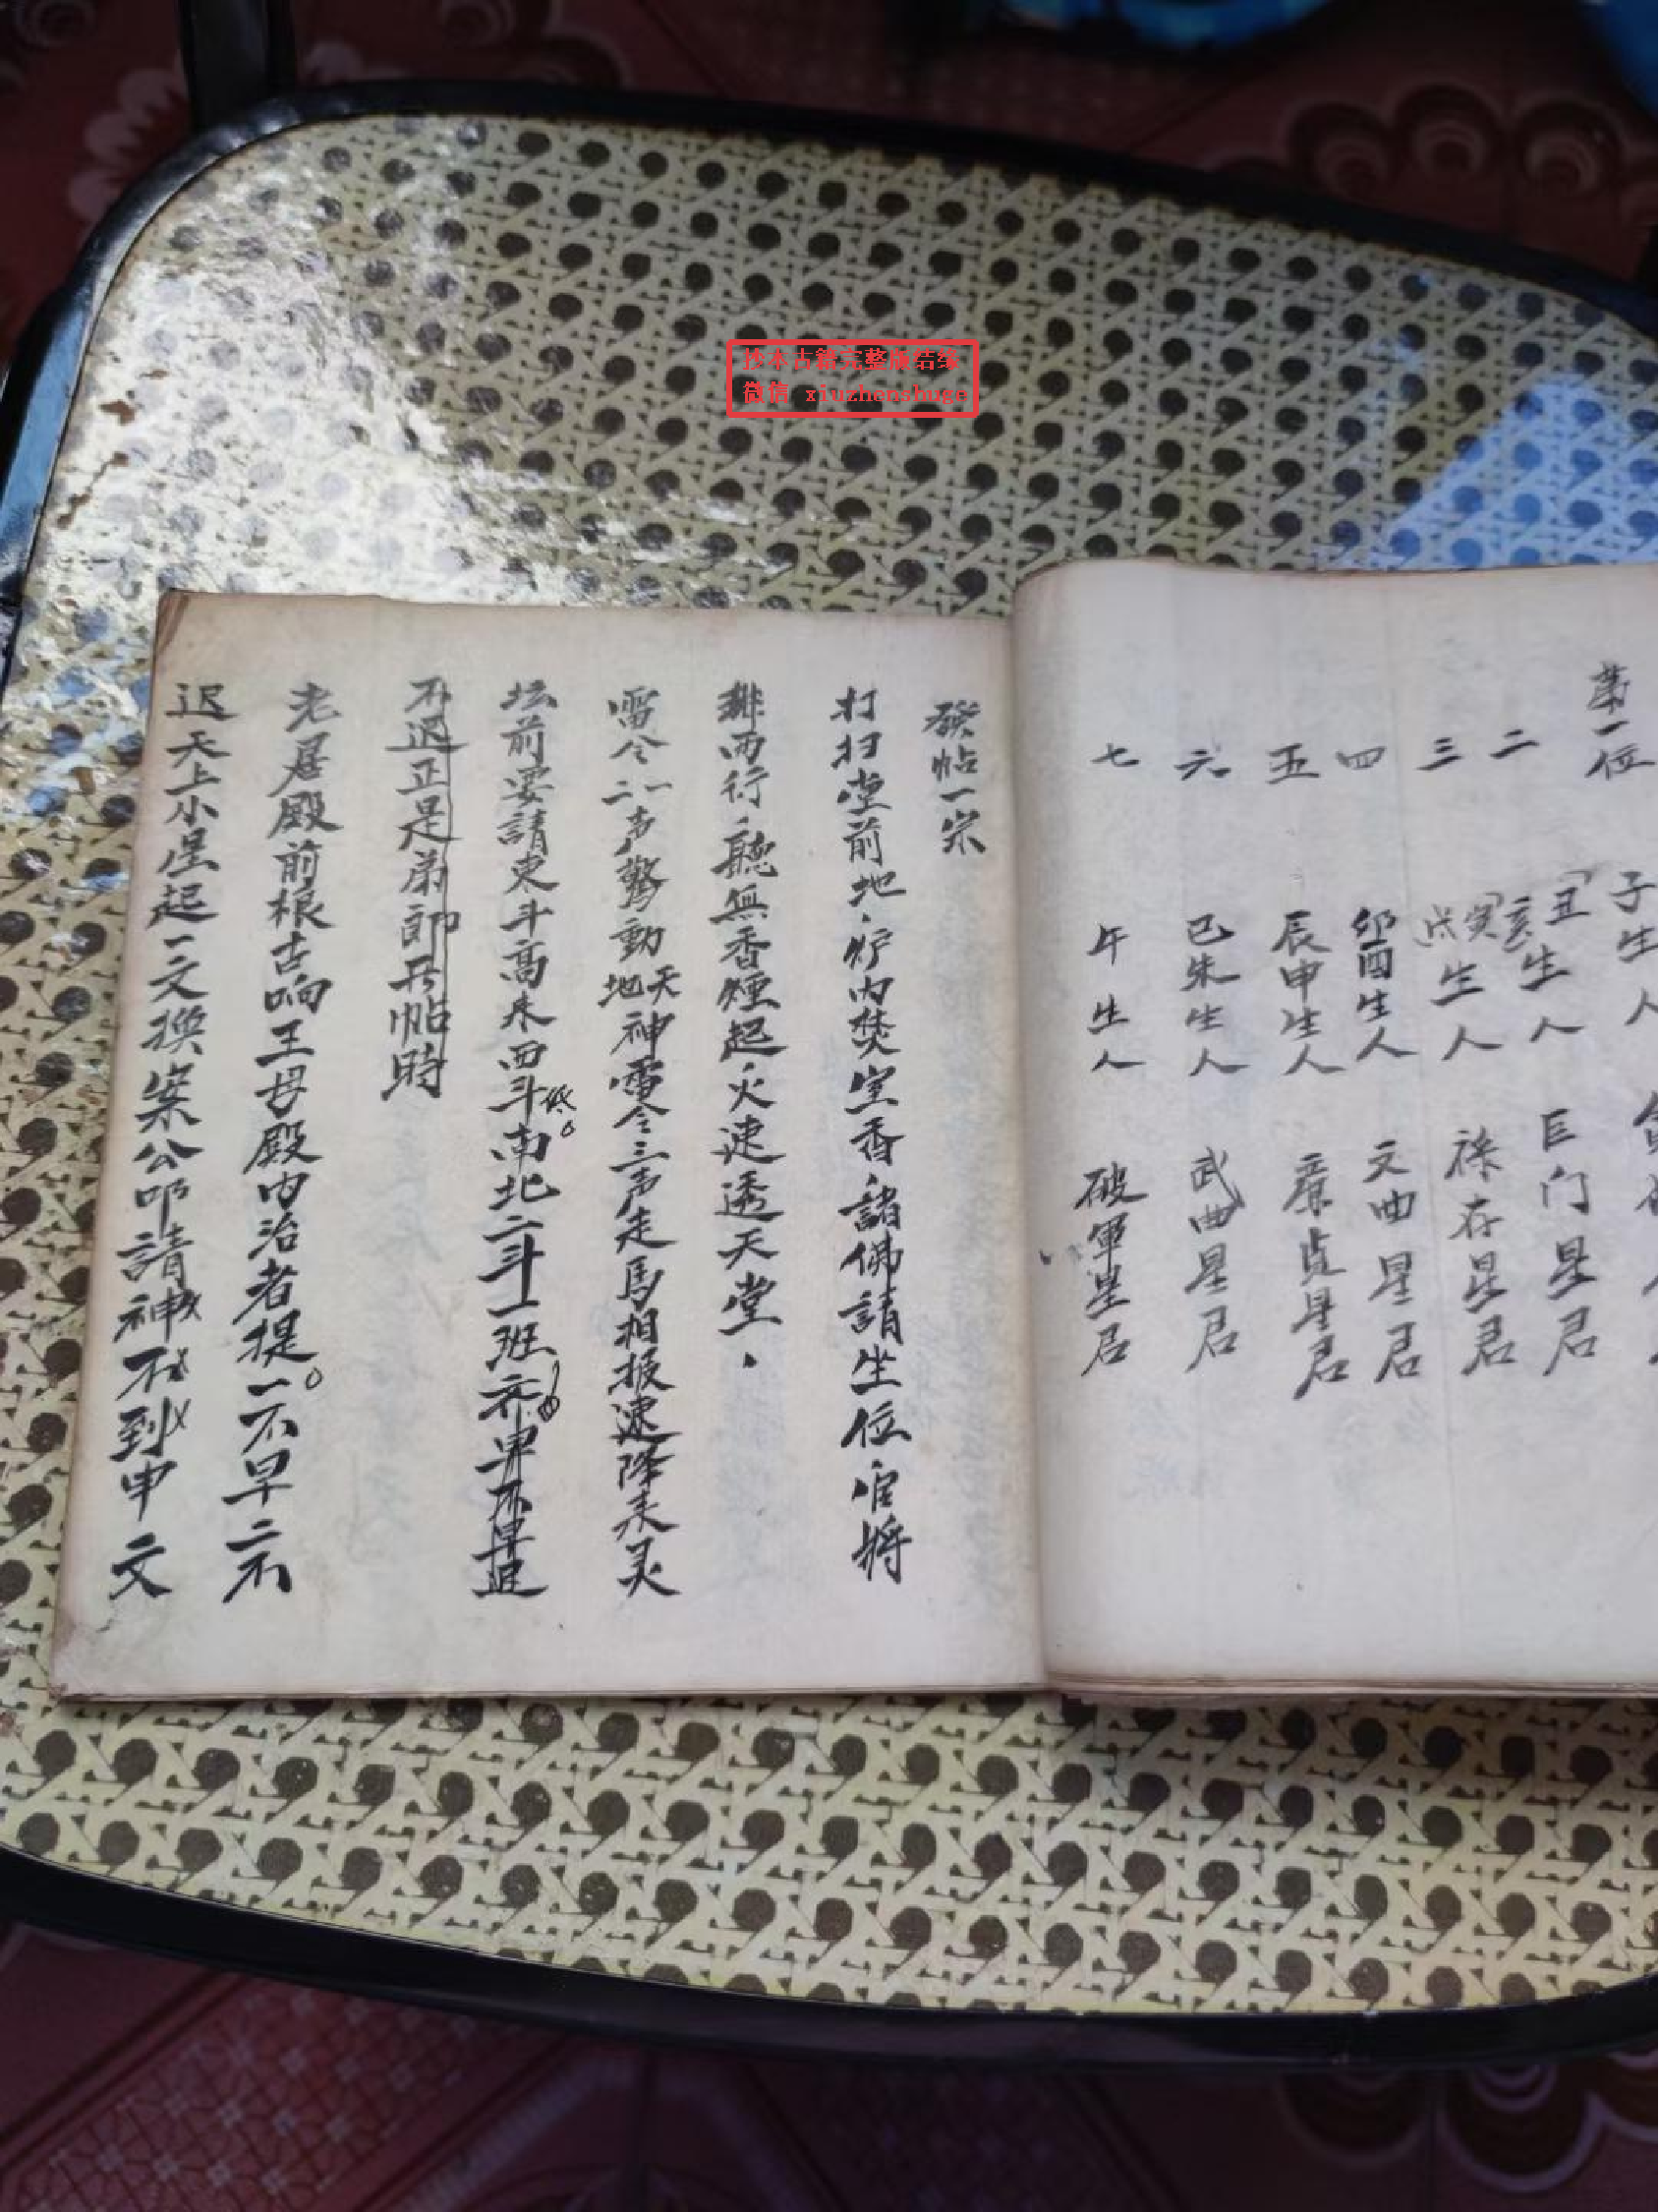 抄本古籍完整版结缘
微信 xiuzhenshuge
第一位 子生人
二 丑亥生人 巨门星君
三 寅戌生人 祿存星君
四 卯酉生人 文曲星君
五 辰申生人 廉貞星君
六 巳未生人 武曲星君
七 午生人 破軍星君
發帖一宗
打扫堂前地炉内焚宝香諸佛請坐位官將
排两行聽無香煙起火速透天堂
雷令一二声驚動天地神雷令三声走馬相报速降来灵
坛前要請東斗高来西斗低南北二斗一班齐畢不早遲
不迟正是弟郎兵帖時
老君殿前根古响王母殿内治者提一不早二不
迟天上小星起一文換案公叩請神不到申文